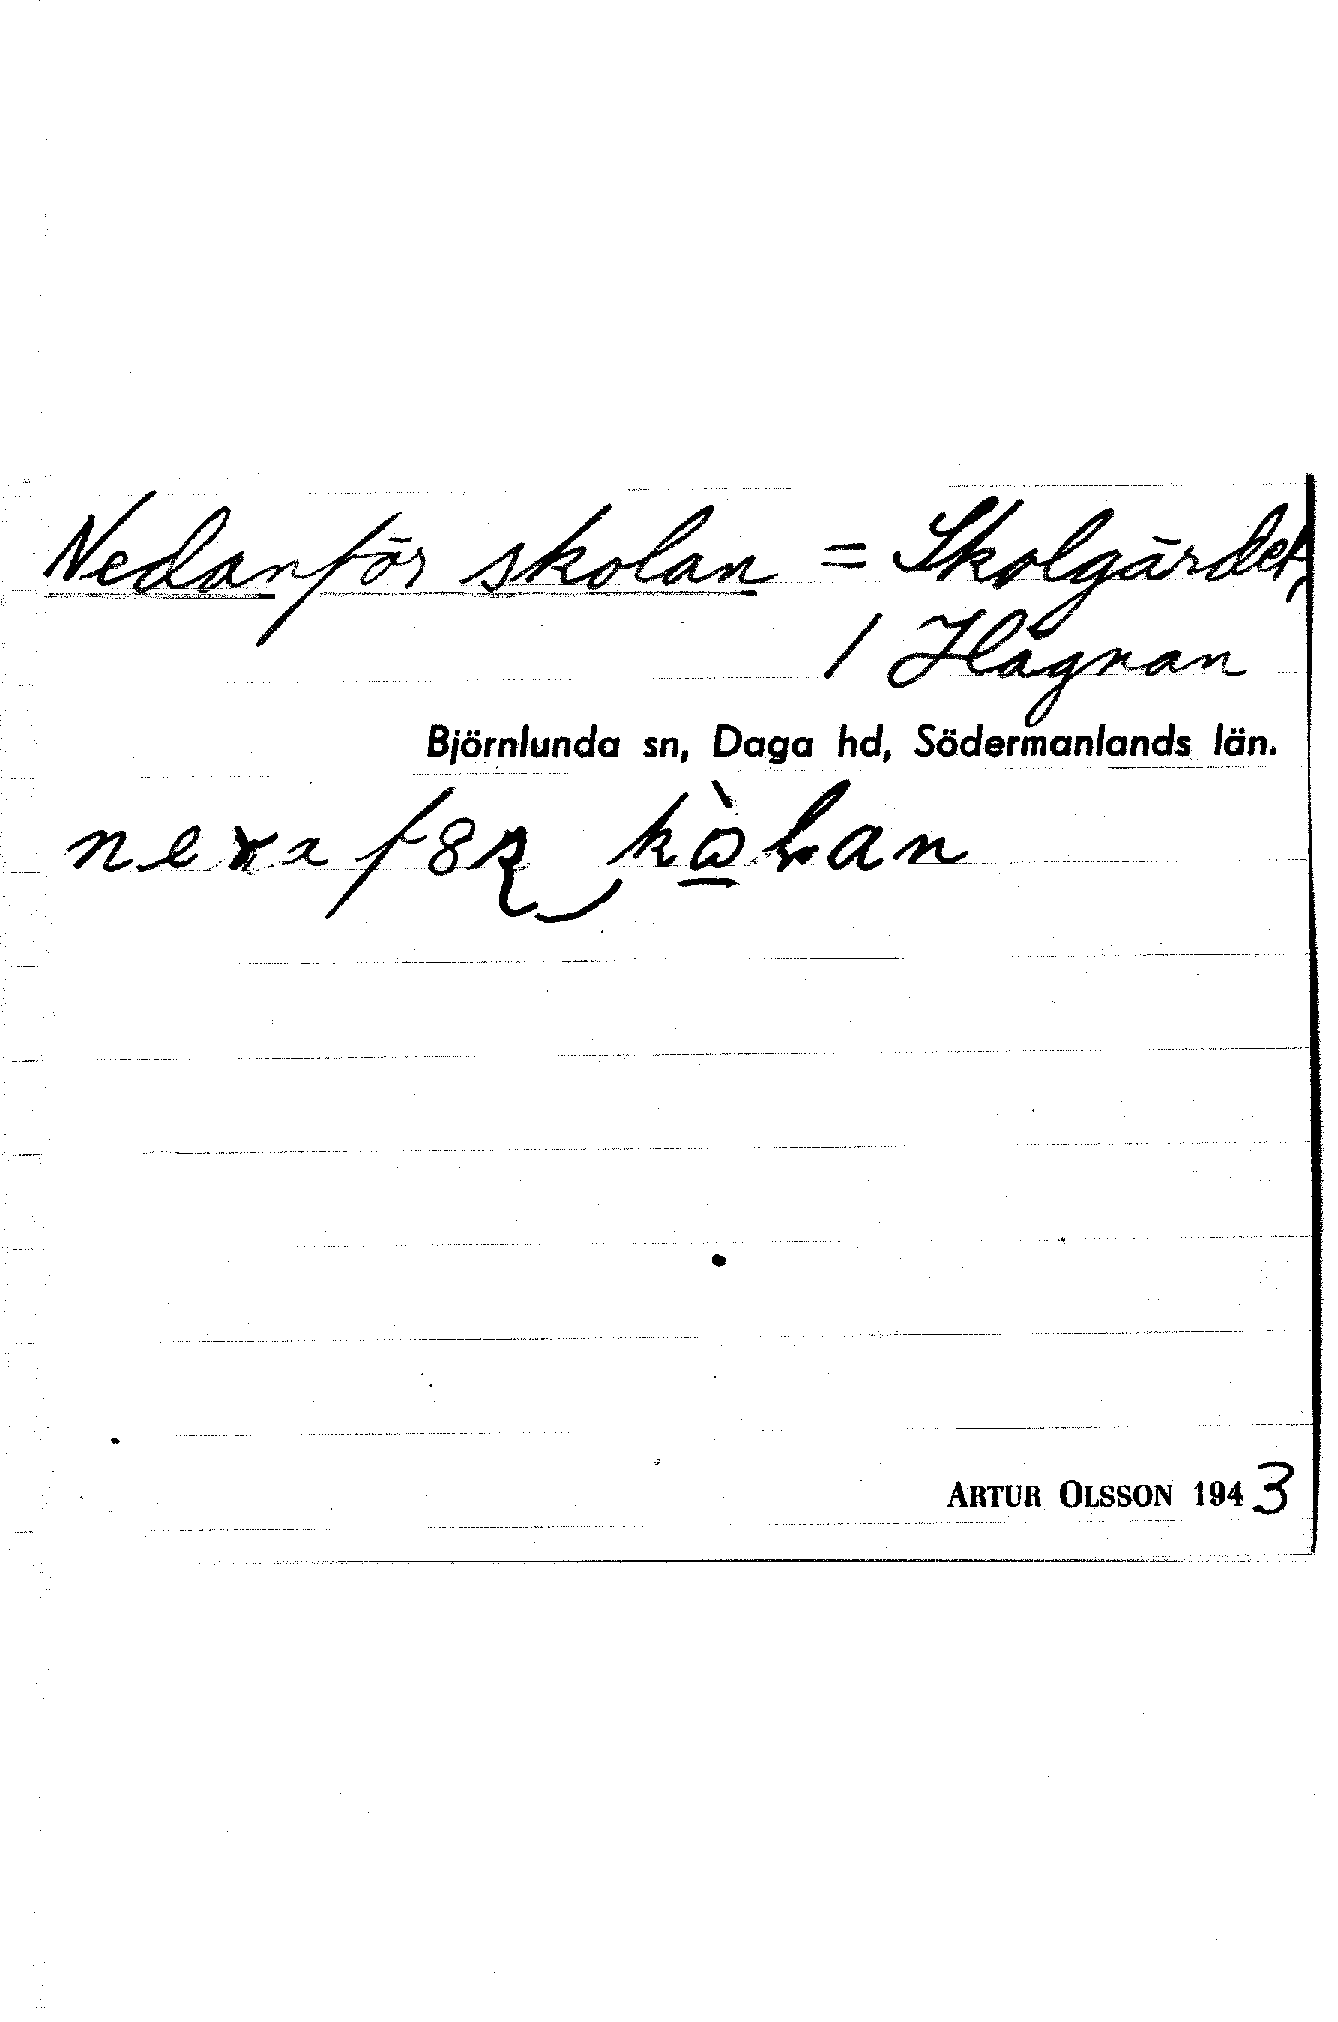 Nedanför skolan = Skolgärdet,
/ Hägnan
Björnlunda sn, Daga hd, Södermanlands län.
ARTUR OLSSON 1943